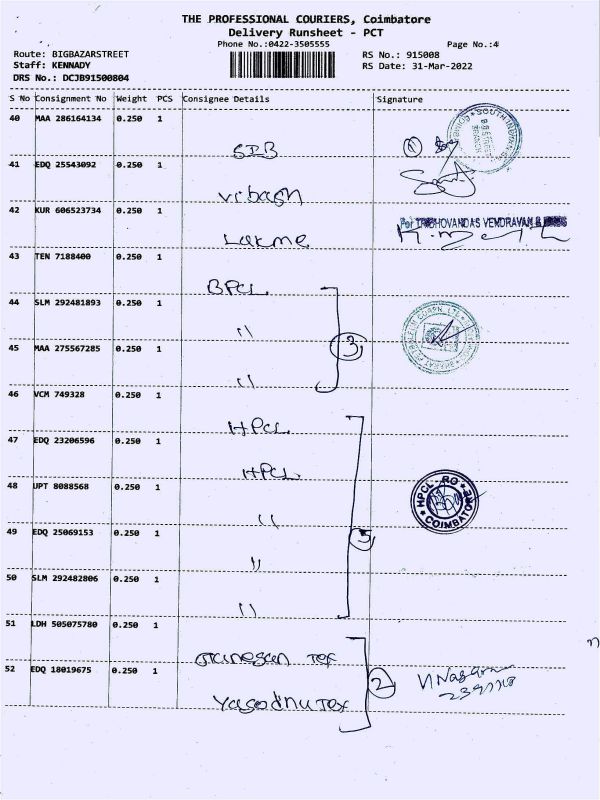 THE PROFESSIONAL COURIERS, Coimbatore
Delivery Runsheet - PCT
Phone No.:0422-3505555 Page No.:4
Route: BIGBAZARSTREET RS No.: 915008
Staff: KENNADY RS Date: 31-Mar-2022
DRS No.: DCJB91500804
S No Consignment No Weight PCS Consignee Details Signature
40 MAA 286164134 0.250 1
SIB
41 EDQ 25543092 0.250 1
42 KUR 606523734 0.250 1
For TRIBHOVANDAS VENDRAVAN &
Lakme
43 TEN 7188400 0.250 1
BPCL
44 SLM 292481893 0.250 1
"
3
45 MAA 275567285 0.250 1
"
46 VCM 749328 0.250 1
HPCL
47 EDQ 23206596 0.250 1
HPCL
48 UPT 8088568 0.250 1
HPCL - RO
COIMBATORE
"
49 EDQ 25069153 0.250 1
5
"
50 SLM 292482806 0.250 1
"
51 LDH 505075780 0.250 1
Tex
52 EDQ 18019675 0.250 1
2
Tex